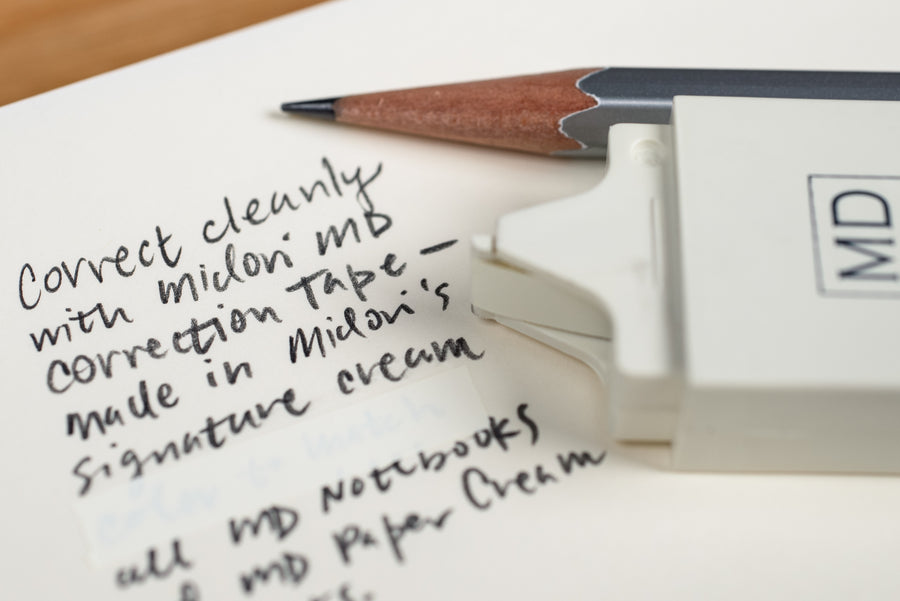 Correct cleanly
with Midori MD
correction Tape –
made in Midori's
signature cream
color to match
all MD Notebooks
MD Paper Cream
MD